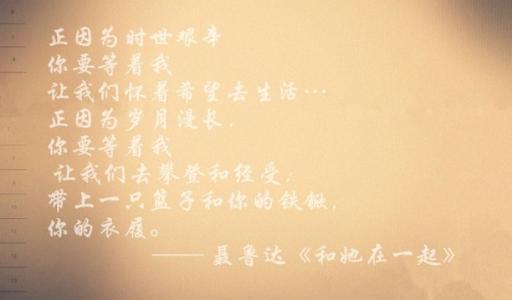 正因为时世艰辛
你要等着我
让我们怀着希望去生活…
正因为岁月漫长，
你要等着我
让我们去攀登和经受；
带上一只篮子和你的铁锹，
你的衣履。
—— 聂鲁达《和她在一起》